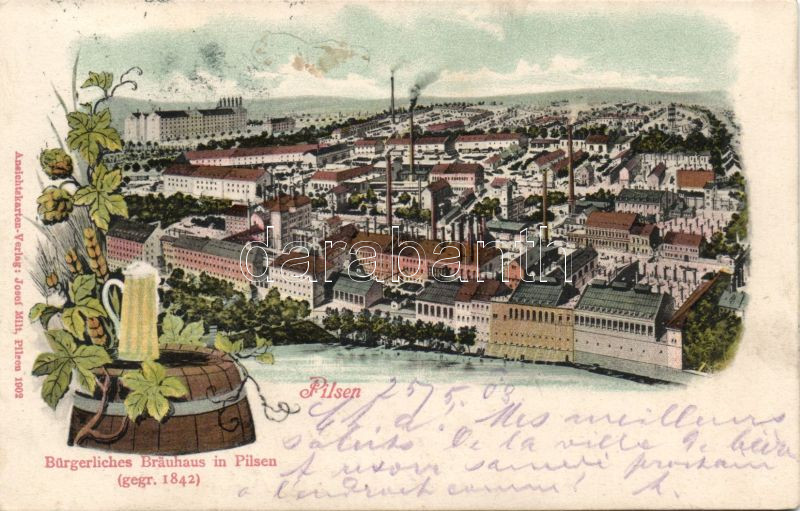 Ansichtskarten-Verlag: Josef Milt, Pilsen 1902
darabanth
Pilsen
25/5. 03
Mes meilleurs
saluts. De la ville
A revoir samedi prochain
à l'endroit connu! A.
Bürgerliches Bräuhaus in Pilsen
(gegr. 1842)